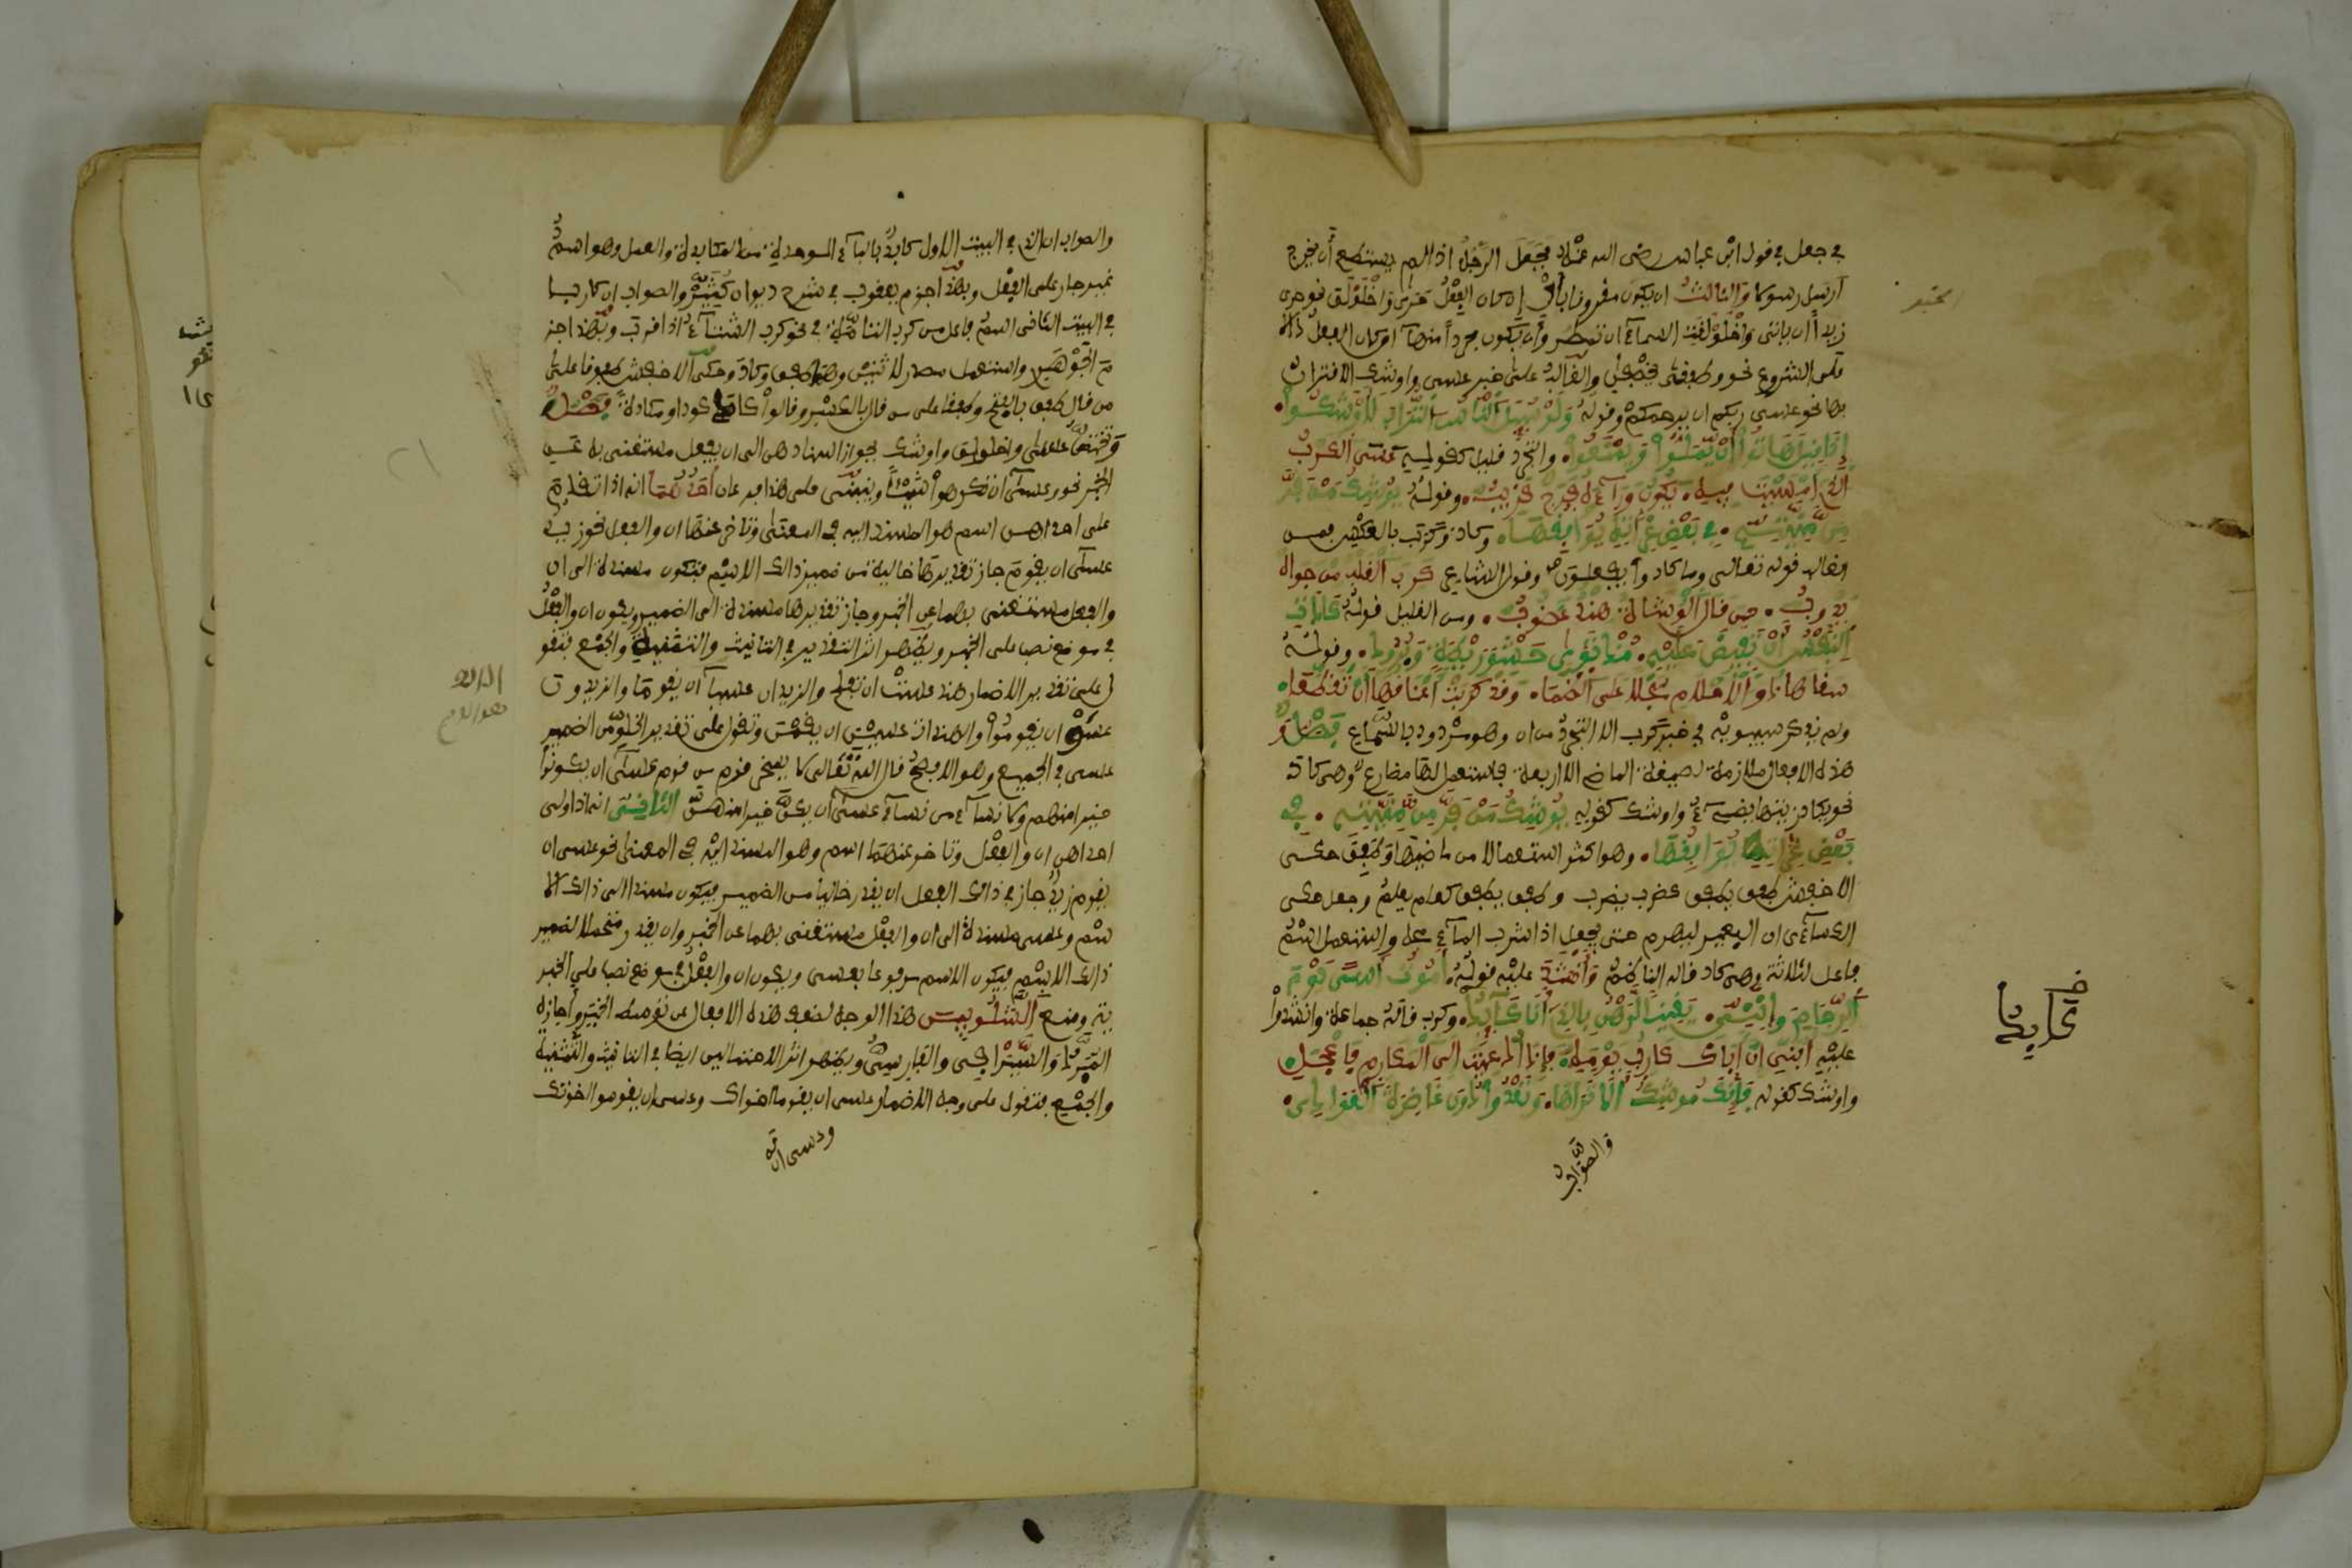 في جعل في قول ابن عباس رضى الله عنه فجعل الرجل اذا لم يستطع أن يخرج
أرسل رسولا والثالث ان يكون مقرونا بأن إن كان الفعل حرى واخلولق نحو حرى
زيد أن ياتى واخلولقت السماء ان تمطر وأن يكون مجردا منها ان كان الفعل دالا
على الشروع نحو وطفقا يخصفان والغالب على خبر عسى واوشك الاقتران
بها نحو عسى ربكم ان يرحمكم وقوله ولو سئل الناس التراب لأوشكوا
إذا قيل هاتوا أن يملوا ويمنعوا والتجرد قليل كقوله عسى الكرب
الذى امسيت فيه يكون وراءه فرج قريب وقوله يوشك من فر
من منيته في بعض غراته يوافقها وكاد وكرب بالعكس فمن
الغالب قوله تعالى وما كادوا يفعلون وقول الشاعر كرب القلب من جواه
يذوب حين قال الوشاة هند غضوب ومن القليل قوله كادت
النفس أن تفيض عليه مذ ثوى حشو ريطة وبرود وقوله
سقاها ذوو الاحلام سجلا على الظما وقد كربت أعناقها أن تقطعا
ولم يذكر سيبويه في خبر كرب الا التجرد من ان وهو مردود بالسماع فصل و
هذه الافعال ملازمة لصيغة الماضى الا اربعة فاستعمل لها مضارع وهى كاد
نحو يكاد زيتها يضىء واوشك كقوله يوشك من فر من منيته في
بعض غراته يوافقها وهو اكثر استعمالا من ماضيها وطفق حكى
الاخفش طفق يطفق كضرب يضرب وطفق يطفق كعلم يعلم وجعل حكى
الكساءى ان البعير ليهرم حتى يجعل اذا شرب الماء مجه واستعمل اسم
فاعل لثلاثة وهى كاد قاله الناظم وأنشد عليه قوله أموت أسى يوم
الرجام وإننى يقينا لرهن بالذى أنا كائد وكرب قاله جماعة وانشدوا
عليه أبنى ان أباك كارب يومه فإذا دعيت الى المكارم فاعجل
واوشك كقوله فإنك موشك ألا تراها وتعدو دون غاضرة العوادى
والصواب
والصواب ان الذى في البيت الاول كابد بالباء الموحدة من المكابدة والعمل وهو اسم
غير جار على الفعل وبهذا جزم يعقوب في شرح ديوان كثير والصواب ان كاربا
في البيت الثانى اسم فاعل من كرب التامة في نحو كرب الشتاء اذا قرب وبهذا جز
م الجوهرى واستعمل مصدر لاثنين وهما طفق وكاد وحكى الاخفش طفوقا على
من قال طفق بالفتح وطفقا على من قال بالكسر وقالوا كاد كودا ومكادة فصل
وتختص عسى واخلولق واوشك بجواز اسنادهن الى ان يفعل مستغنى به عن
الخبر نحو وعسى أن تكرهوا شيئا وينبنى على هذا فرعان أحدهما انه اذا تقدم
على احداهن اسم هو المسند اليه في المعنى وتاخر عنها ان والفعل نحو زيد
عسى ان يقوم جاز تقديرها خالية من ضمير ذالك الاسم فتكون مسندة الى ان
والفعل مستغنى بهما عن الخبر وجاز تقديرها مسندة الى الضمير ويكون ان والفعل
في موضع نصب على الخبر ويظهر اثر التقدير في التانيث والتثنية والجمع فتقو
ل على تقدير الاضمار هند عست ان تفعل والزيدان عسيا ان يقوما والزيدون
عسوا ان يقوموا والهندات عسين ان يقمن وتقول على تقدير الخلو من الضمير
عسى في الجميع وهو الافصح قال الله تعالى لا يسخر قوم من قوم عسى ان يكونوا
خيرا منهم ولا نساء من نساء عسى ان يكن خيرا منهن الثانى انه اذا ولى
احداهن ان والفعل وتاخر عنهما اسم وهو المسند اليه في المعنى نحو عسى ان
يقوم زيد جاز في ذالك الفعل ان يقدر خاليا من الضمير فيكون مسندا الى ذالك الا
سم وعسى مسندة الى ان والفعل مستغنى بهما عن الخبر وان يقدر متحملا لضمير
ذالك الاسم فيكون الاسم مرفوعا بعسى ويكون ان والفعل في موضع نصب على الخبر
ية ومنع الشلوبين هذا الوجه لضعف هذه الافعال عن توسط الخبر وأجازه
المبرد والسيرافى والفارسى ويظهر اثر الاحتمالين ايضا في التانيث والتثنية
والجمع فتقول على وجه الاضمار عسى ان يقوما اخواك وعسى ان يقوموا اخوتك
وعسى ان